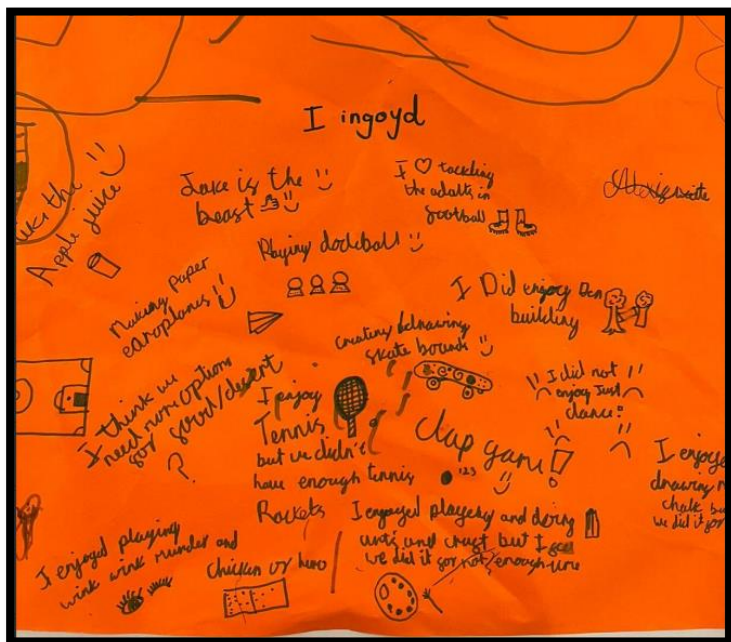 I ingoyd
with the
Apple juice
Jake is the
beast
I ♡ tackling
the adults in
football
Playing dodcball
Making Paper
earoplanes
I Did enjoy Den
building
creating & drawing
skate bounds
I think we
need more options
for food/desert
?
I enjoy
Tennis
but we didn't
have enough tennis
Rackets
clap game!
123
I did not
enjoy Just
dance
I enjoye
drawing
chalk bu
we did it for
I enjoyed playing
wink wink murder and
chicken or hero
I engoyed playeky and doring
and crast but I
we did it for not enough time